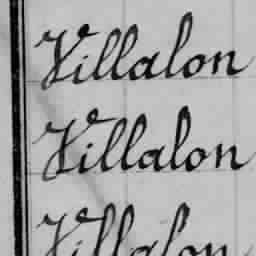 Villalon
Villalon
Villalon